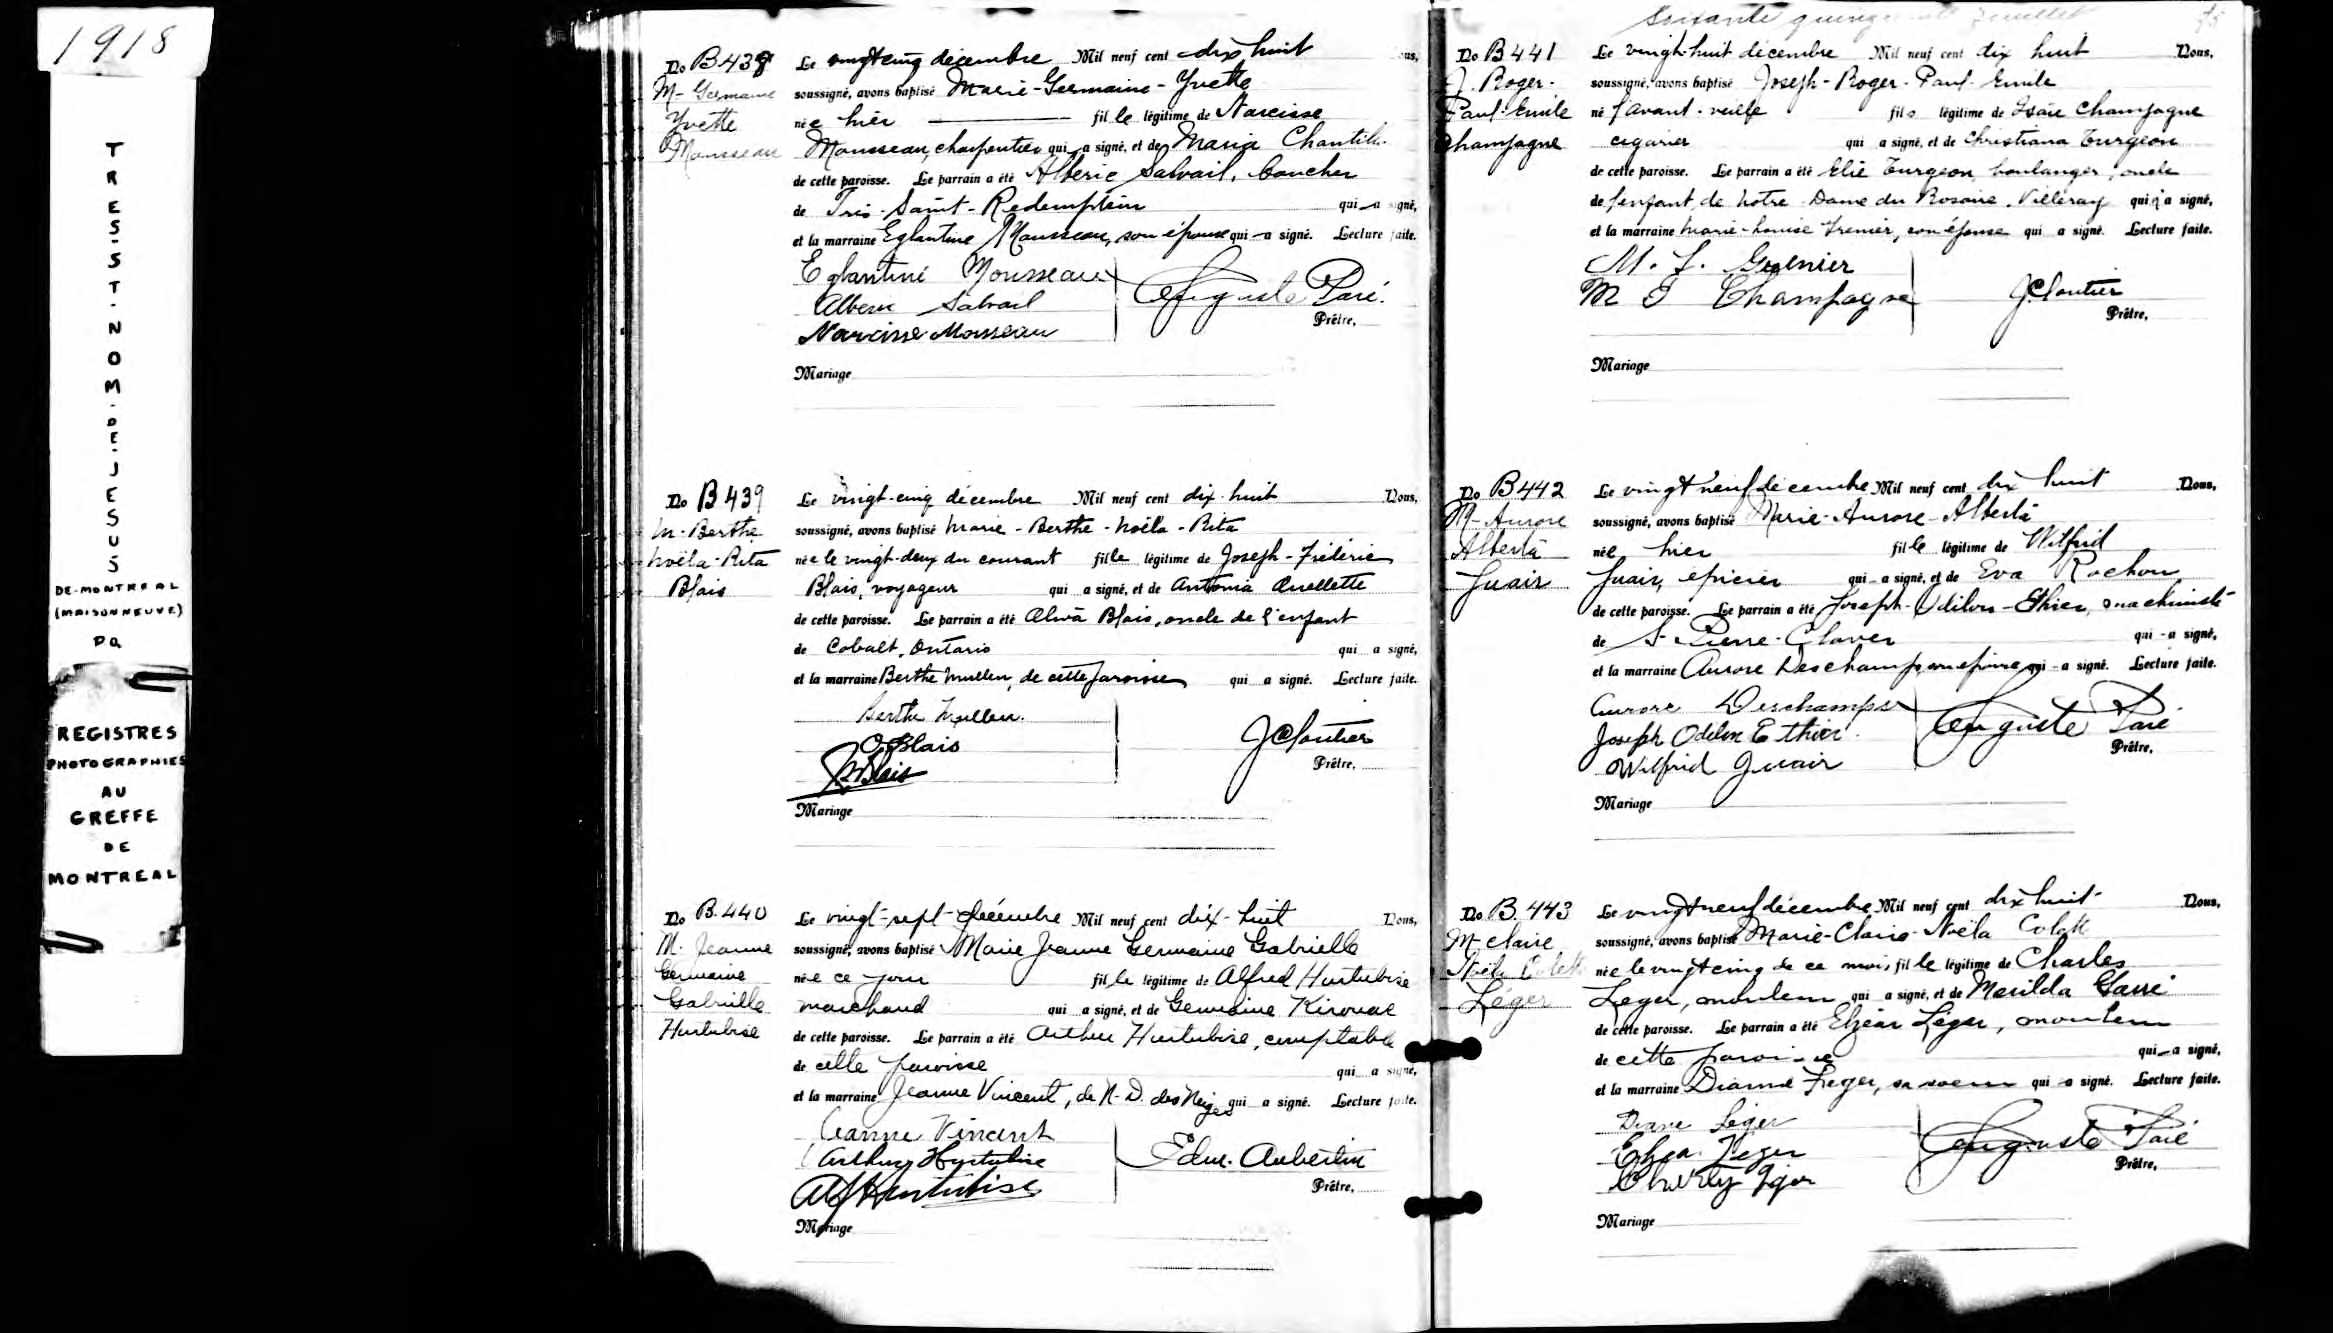 1918
TRES-ST-NOM-DE-JESUS
DE-MONTREAL
(MAISONNEUVE)
PQ
REGISTRES
PHOTOGRAPHIES
AU
GREFFE
DE
MONTREAL
No B438
M-Germaine
Yvette
Mousseau
Le vingt cinq décembre Mil neuf cent dix huit
soussigné, avons baptisé Marie-Germaine-Yvette
née hier fille légitime de Narcisse
Mousseau, charpentier qui a signé, et de Maria
de cette paroisse. Le parrain a été Albéric Salvail, boucher
de Très-Saint-Redempteur qui a signé,
et la marraine Eglantine Mousseau, son épouse qui a signé. Lecture faite.
Eglantine Mousseau
Alberic Salvail
Narcisse Mousseau
Auguste Paré
Prêtre,
Mariage
No B439
M-Berthe
Noëla-Rita
Blais
Le vingt-cinq décembre Mil neuf cent dix-huit Nous,
soussigné, avons baptisé Marie-Berthe-Noëla-Rita
née le vingt-deux du courant fille légitime de Joseph-Fréderic
Blais, voyageur qui a signé, et de Antonia Ouellette
de cette paroisse. Le parrain a été Blais, oncle de l'enfant
de Cobalt, Ontario qui a signé,
et la marraine Berthe Mullen, de cette paroisse qui a signé. Lecture faite.
Berthe Mullen.
Blais
Blais
J Cloutier
Prêtre,
Mariage
No B.440
M. Jeanne
Germaine
Gabrielle
Hurtubise
Le vingt-sept décembre Mil neuf cent dix-huit Nous,
soussigné, avons baptisé Marie Jeanne Germaine Gabrielle
née ce jour fille légitime de Alfred Hurtubise
marchand qui a signé, et de Germaine Kirouac
de cette paroisse. Le parrain a été Arthur Hurtubise, comptable
de cette paroisse qui a signé,
et la marraine Jeanne Vincent, de N-D. des Neiges qui a signé. Lecture faite.
Jeanne Vincent
Arthur Hurtubise
Alf Hurtubise
Edm. Aubertin
Prêtre,
Mariage
No B441
J. Roger-
Paul-Emile
Champagne
Le vingt-huit décembre Mil neuf cent dix huit Nous,
soussigné, avons baptisé Joseph-Roger-Paul-Emile
né l'avant-veille fils légitime de Isaïe Champagne
cigarier qui a signé, et de Christiana Turgeon
de cette paroisse. Le parrain a été Elie Turgeon, boulanger, oncle
de l'enfant, de Notre-Dame du Rosaire, Villeray qui a signé,
et la marraine Marie-Louise Grenier, son épouse qui a signé. Lecture faite.
M. L. Grenier
M I Champagne
J. Cloutier
Prêtre,
Mariage
No B442
M-Aurore
Alberta
Juair
Le vingt neuf décembre Mil neuf cent dix huit Nous,
soussigné, avons baptisé Marie-Aurore-Alberta
née hier fille légitime de Wilfrid
Juair, épicier qui a signé, et de Eva Rochon
de cette paroisse. Le parrain a été Joseph-Odilon-Ethier, machiniste
de St-Pierre-Claver qui a signé,
et la marraine Aurore Deschamps, son épouse qui a signé. Lecture faite.
Aurore Deschamps
Joseph Odilon Ethier
Wilfrid Juair
Auguste Paré
Prêtre,
Mariage
No B.443
M-Claire
Noëla Colette
Léger
Le vingt neuf décembre Mil neuf cent dix huit Nous,
soussigné, avons baptisé Marie-Claire-Noëla Colette
née le vingt cinq de ce mois, fille légitime de Charles
Léger, mouleur qui a signé, et de Merilda
de cette paroisse. Le parrain a été Elzéar Léger, mouleur
de cette paroisse qui a signé,
et la marraine Léger, sa soeur qui a signé. Lecture faite.
Diane Léger
Léger
Auguste Paré
Prêtre,
Mariage